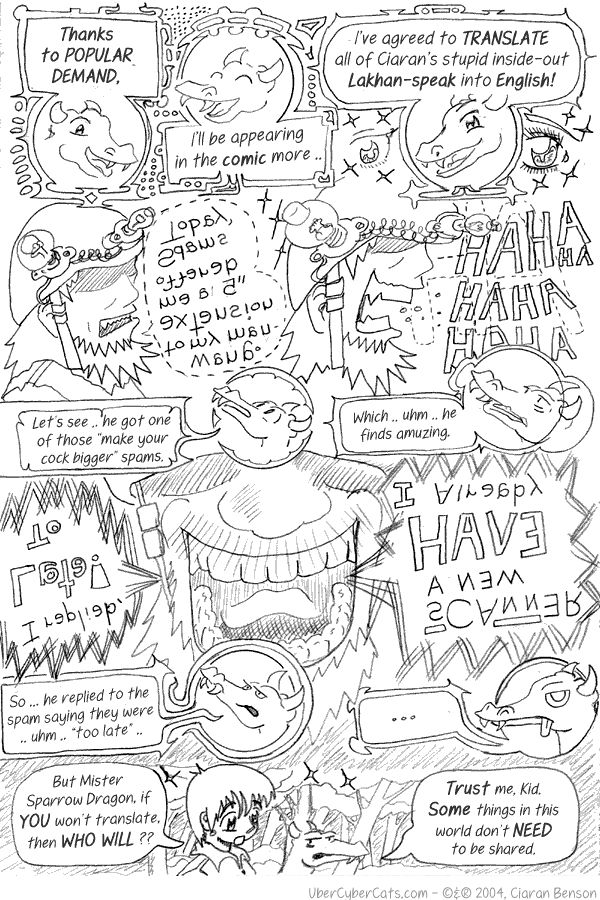 Thanks
to POPULAR
DEMAND,
I'll be appearing
in the comic more ..
I've agreed to TRANSLATE
all of Ciaran's stupid inside-out
Lakhan-speak into English!
Today
Spams
offered
me a 5"
extension
to my man-
wang.
HAHA
HA
HAHA
HAHA
Let's see .. he got one
of those "make your
cock bigger" spams.
Which .. uhm .. he
finds amuzing.
I replied,
Late!
To
I Already
HAVE
A NEW
SCANNER
So ... he replied to the
spam saying they were
.. uhm .. "too late" ..
...
But Mister
Sparrow Dragon, if
YOU won't translate,
then WHO WILL ??
Trust me, Kid.
Some things in this
world don't NEED
to be shared.
UberCyberCats.com – ©&® 2004, Ciaran Benson